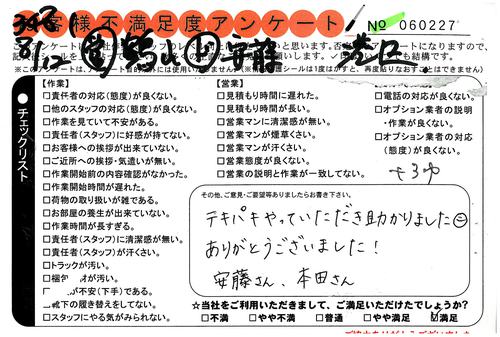 お客様不満足度アンケート
No 060227
8/12
安藤
港区
チェックリスト
【作業】
□責任者の対応(態度)が良くない。
□他のスタッフの対応(態度)が良くない。
□作業を見ていて不安がある。
□責任者(スタッフ)に好感が持てない。
□お客様への挨拶が出来ていない。
□ご近所への挨拶・気遣いが無い。
□作業開始前の内容確認がなかった。
□作業開始時間が遅れた。
□荷物の取り扱いが雑である。
□お部屋の養生が出来ていない。
□作業時間が長すぎる。
□責任者(スタッフ)に清潔感が無い。
□責任者(スタッフ)が汗くさい。
□トラックが汚い。
□梱包 が汚い。
が不安(下手)である。
靴下の履き替えをしてない。
□スタッフにやる気がみられない。
【営業】
□見積もり時間に遅れた。
□見積もり時間が長い。
□営業マンに清潔感が無い。
□営業マンが煙草くさい。
□営業マンが汗くさい。
□営業態度が良くない。
□営業の説明と作業が一致してない。
□電話の対応が良くない。
□オプション業者の説明
・作業が良くない。
□オプション業者の対応
(態度)が良くない。
その他、ご意見・ご要望等ありましたらお書き下さい。
テキパキやっていただき助かりました
ありがとうございました!
安藤さん、本田さん
☆当社をご利用いただきまして、ご満足いただけたでしょうか?
□不満 □やや不満 □普通 □やや満足 ☑満足